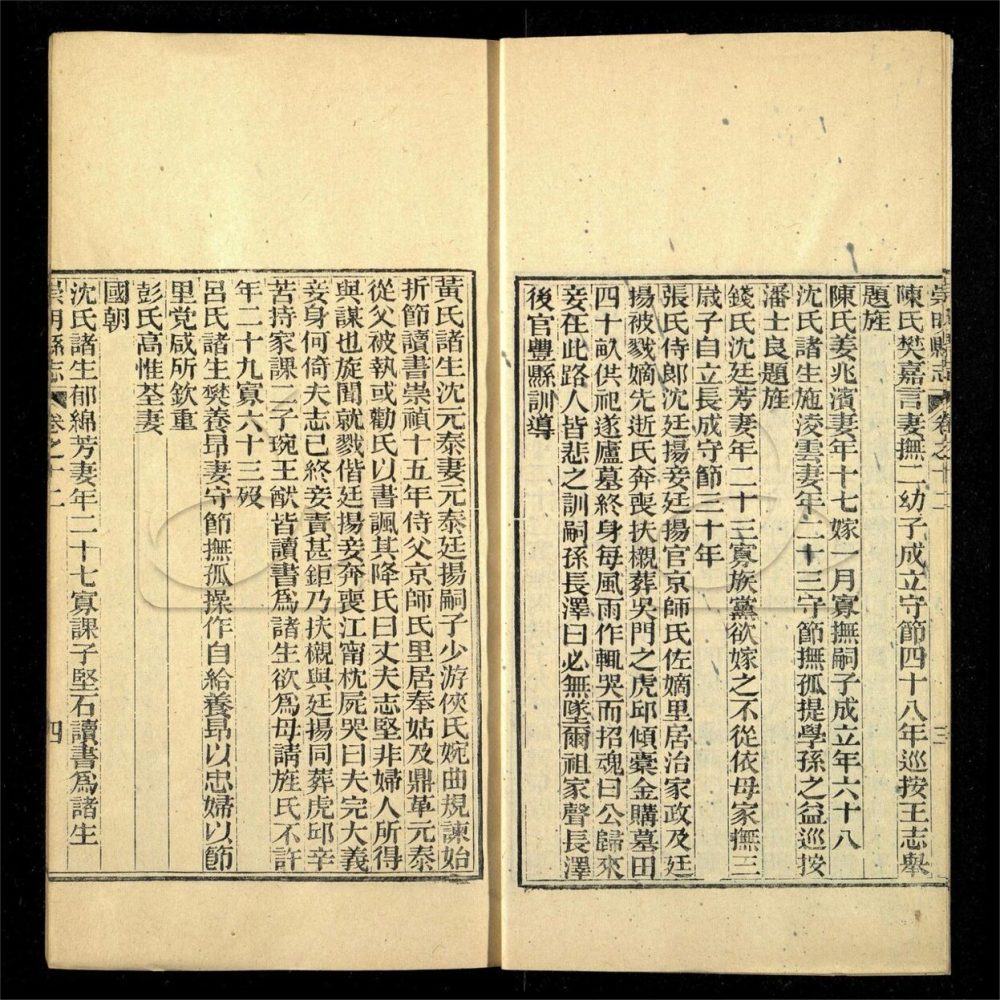 崇明縣志 卷之十二 三
陳氏樊嘉言妻撫二幼子成立守節四十八年巡按王志舉
題旌
陳氏姜兆濱妻年十七嫁一月寡撫嗣子成立年六十八
沈氏諸生施淩雲妻年二十三守節撫孤提學孫之益巡按
潘士良題旌
錢氏沈廷芳妻年二十三寡族黨欲嫁之不從依母家撫三
歲子自立長成守節三十年
張氏侍郎沈廷揚妾廷揚官京師氏佐嫡里居治家政及廷
揚被戮嫡先逝氏奔喪扶櫬葬吳門之虎邱傾囊金購墓田
四十畝供祀遂廬墓終身每風雨作輒哭而招魂曰公歸來
妾在此路人皆悲之訓嗣孫長澤曰必無墜爾祖家聲長澤
後官豐縣訓導
黃氏諸生沈元泰妻元泰廷揚嗣子少游俠氏婉曲規諫始
折節讀書崇禎十五年侍父京師氏里居奉姑及鼎革元泰
從父被執或勸氏以書諷其降氏曰丈夫志堅非婦人所得
與謀也旋聞就戮偕廷揚妾奔喪江甯枕屍哭曰夫完大義
妾身何倚夫志已終妾責甚鉅乃扶櫬與廷揚同葬虎邱辛
苦持家課二子琬王猷皆讀書爲諸生欲爲母請旌氏不許
年二十九寡六十三歿
呂氏諸生樊養昂妻守節撫孤操作自給養昂以忠婦以節
里党咸所欽重
彭氏高惟荃妻
國朝
沈氏諸生郁綿芳妻年二十七寡課子堅石讀書爲諸生
崇明縣志 卷之十二 四